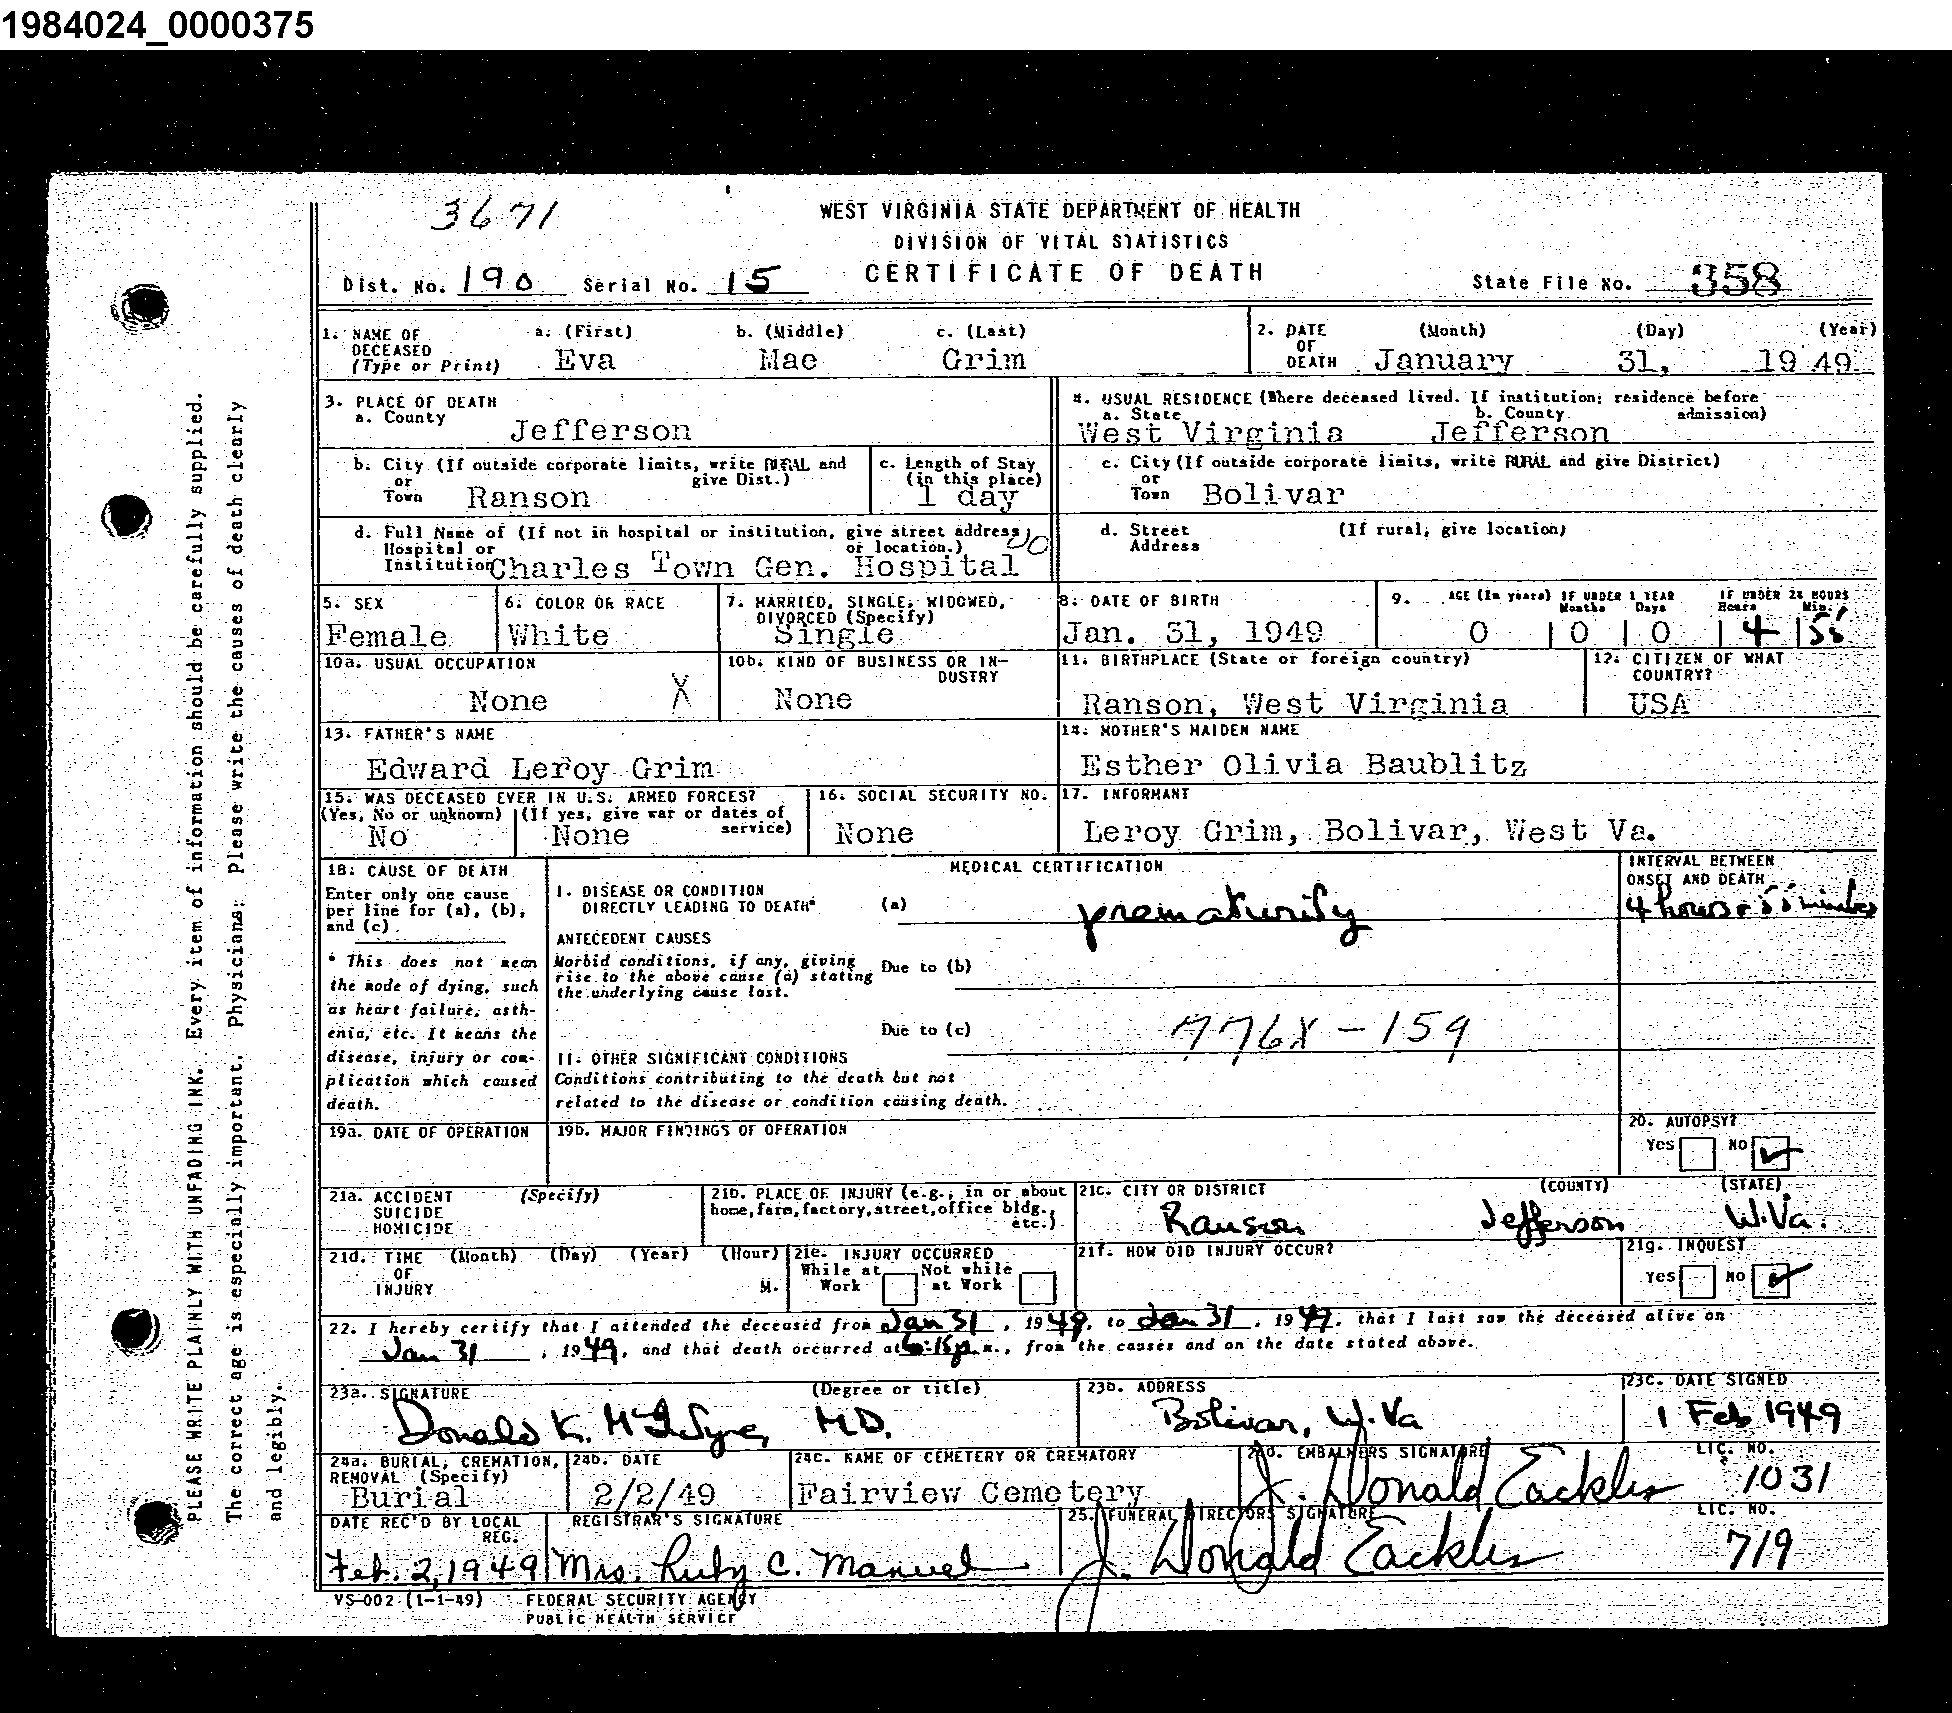 1984024_0000375
3671
WEST VIRGINIA STATE DEPARTMENT OF HEALTH
DIVISION OF VITAL STATISTICS
CERTIFICATE OF DEATH
Dist. No. 190 Serial No. 15
State File No. 358
1. NAME OF DECEASED (Type or Print) a. (First) b. (Middle) c. (Last)
Eva Mae Grim
2. DATE OF DEATH (Month) (Day) (Year)
January 31, 1949
3. PLACE OF DEATH
a. County
Jefferson
4. USUAL RESIDENCE (Where deceased lived. If institution: residence before admission)
a. State b. County
West Virginia Jefferson
b. City (If outside corporate limits, write RURAL and give Dist.)
or Town Ranson
c. Length of Stay (in this place)
1 day
c. City (If outside corporate limits, write RURAL and give District)
or Town Bolivar
d. Full Name of (If not in hospital or institution, give street address or location.)
Hospital or Institution Charles Town Gen. Hospital
d. Street Address (If rural, give location)
5. SEX
Female
6. COLOR OR RACE
White
7. MARRIED, SINGLE, WIDOWED, DIVORCED (Specify)
Single
8. DATE OF BIRTH
Jan. 31, 1949
9. AGE (In years) IF UNDER 1 YEAR Months Days IF UNDER 24 HOURS Hours Min.
0 0 0 4 55
10a. USUAL OCCUPATION
None X
10b. KIND OF BUSINESS OR INDUSTRY
None
11. BIRTHPLACE (State or foreign country)
Ranson, West Virginia
12. CITIZEN OF WHAT COUNTRY?
USA
13. FATHER'S NAME
Edward Leroy Grim
14. MOTHER'S MAIDEN NAME
Esther Olivia Baublitz
15. WAS DECEASED EVER IN U.S. ARMED FORCES?
(Yes, No or unknown) (If yes, give war or dates of service)
No None
16. SOCIAL SECURITY NO.
None
17. INFORMANT
Leroy Grim, Bolivar, West Va.
18. CAUSE OF DEATH
Enter only one cause per line for (a), (b), and (c)
* This does not mean the mode of dying, such as heart failure, asthenia, etc. It means the disease, injury or complication which caused death.
MEDICAL CERTIFICATION
I. DISEASE OR CONDITION DIRECTLY LEADING TO DEATH* (a) prematurity
INTERVAL BETWEEN ONSET AND DEATH
4 hours + 55 minutes
ANTECEDENT CAUSES
Morbid conditions, if any, giving rise to the above cause (a) stating the underlying cause last.
Due to (b)
Due to (c)
776X - 159
II. OTHER SIGNIFICANT CONDITIONS
Conditions contributing to the death but not related to the disease or condition causing death.
19a. DATE OF OPERATION
19b. MAJOR FINDINGS OF OPERATION
20. AUTOPSY?
Yes No ✓
21a. ACCIDENT SUICIDE HOMICIDE (Specify)
21b. PLACE OF INJURY (e.g., in or about home, farm, factory, street, office bldg., etc.)
21c. CITY OR DISTRICT (COUNTY) (STATE)
Ranson Jefferson W.Va.
21d. TIME OF INJURY (Month) (Day) (Year) (Hour) M.
21e. INJURY OCCURRED
While at Work Not while at Work
21f. HOW DID INJURY OCCUR?
21g. INQUEST
Yes No ✓
22. I hereby certify that I attended the deceased from Jan 31, 1949, to Jan 31, 1949, that I last saw the deceased alive on
Jan 31, 1949, and that death occurred at 6:15 p.m., from the causes and on the date stated above.
23a. SIGNATURE (Degree or title)
Donald K. McIntyre, M.D.
23b. ADDRESS
Bolivar, W.Va
23c. DATE SIGNED
1 Feb 1949
24a. BURIAL, CREMATION, REMOVAL (Specify)
Burial
24b. DATE
2/2/49
24c. NAME OF CEMETERY OR CREMATORY
Fairview Cemetery
24d. EMBALMERS SIGNATURE LIC. NO.
J. Donald Eackles 1031
DATE REC'D BY LOCAL REG.
Feb. 2, 1949
REGISTRAR'S SIGNATURE
Mrs. Ruby C. Manuel
25. FUNERAL DIRECTORS SIGNATURE LIC. NO.
J. Donald Eackles 719
VS-002 (1-1-49) FEDERAL SECURITY AGENCY
PUBLIC HEALTH SERVICE
PLEASE WRITE PLAINLY WITH UNFADING INK. Every item of information should be carefully supplied.
The correct age is especially important. Physicians: please write the causes of death clearly
and legibly.